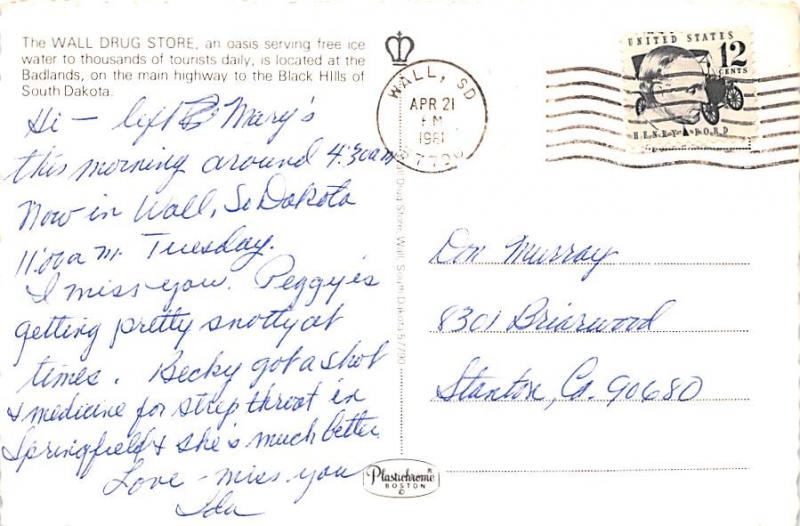 The WALL DRUG STORE, an oasis serving free ice
water to thousands of tourists daily, is located at the
Badlands, on the main highway to the Black Hills of
South Dakota.
Hi - left Mary's
this morning around 4:30am
Now in Wall, So Dakota
11:00a m. Tuesday.
I miss you. Peggy is
getting pretty snotty at
times. Becky got a shot
& medicine for strep throat in
Springfield & she's much better
Love - miss you
Ida
WALL, SD
APR 21
PM
1981
57790
UNITED STATES
12
CENTS
HENRY FORD
Drug Store, Wall, South Dakota 57790
Don Murray
8301 Briarwood
Stanton, Ca. 90680
Plastichrome®
BOSTON